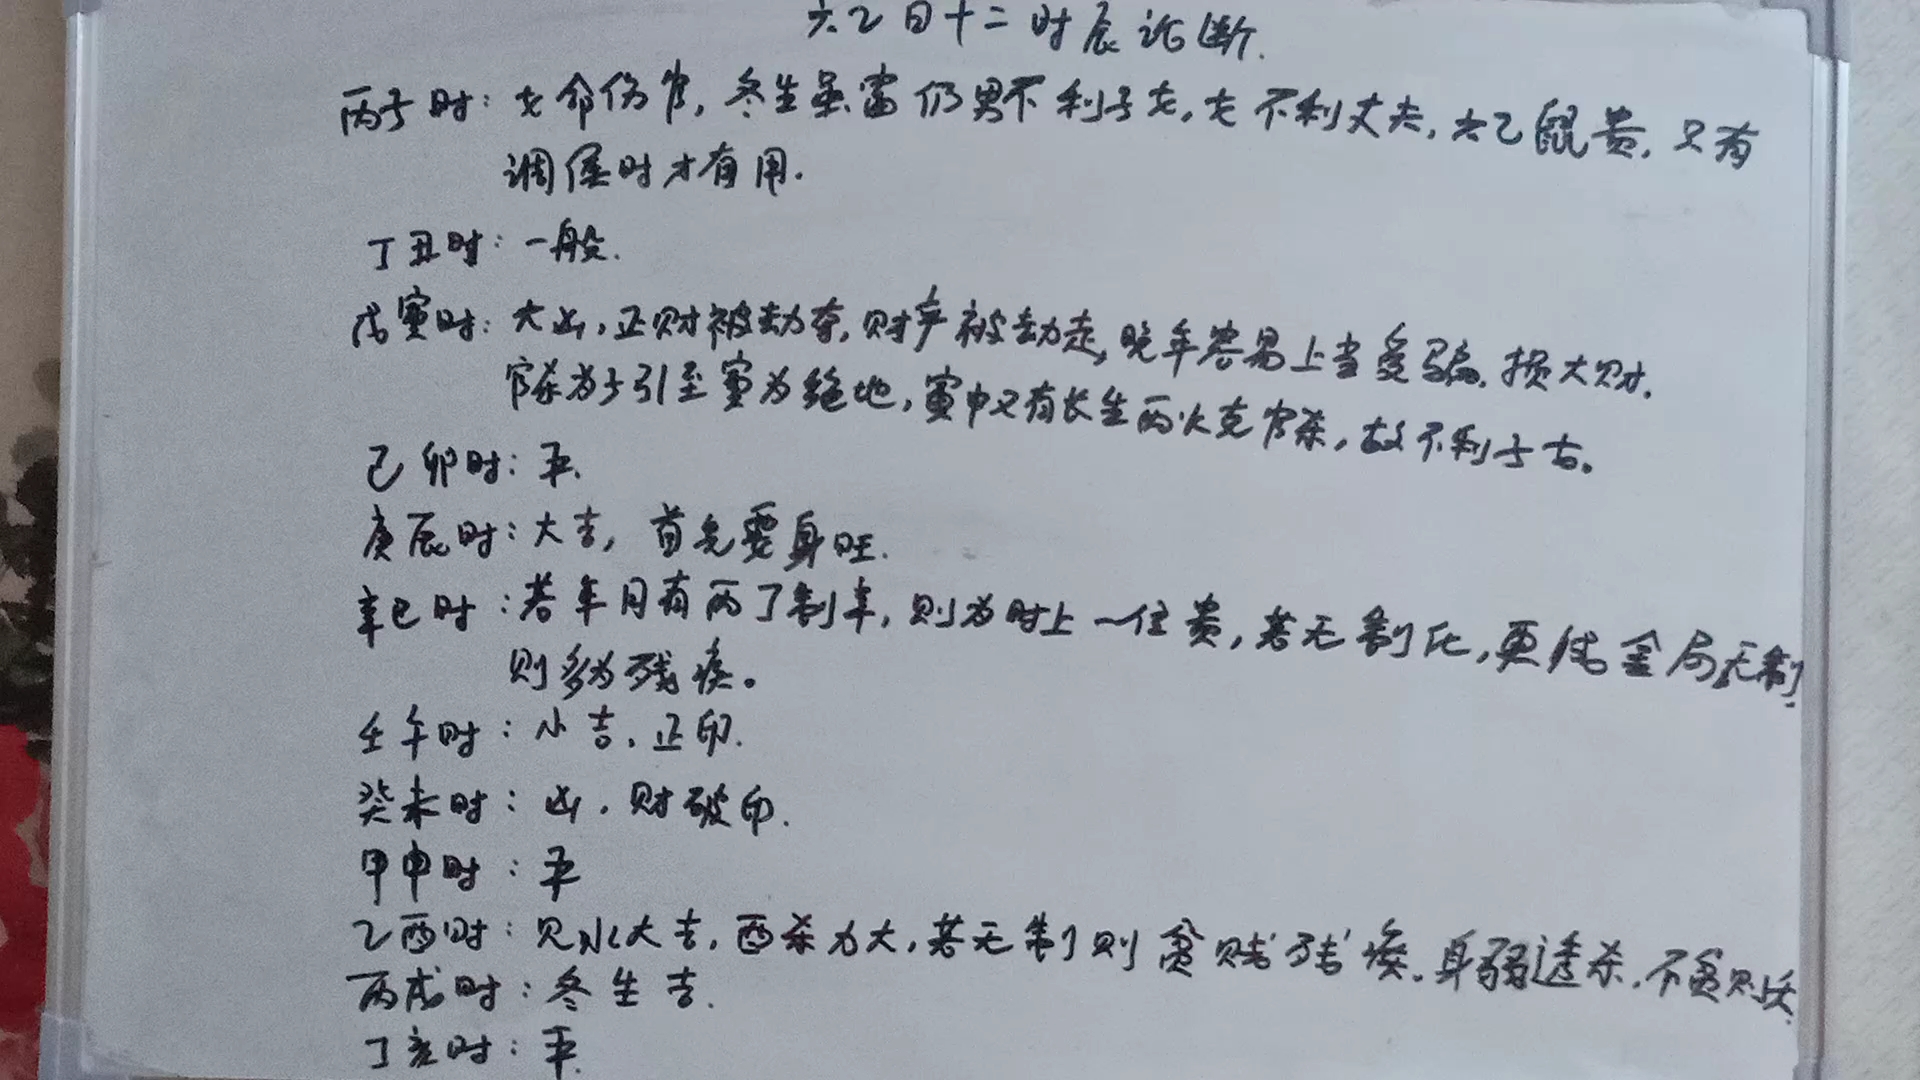 六乙日十二时辰论断.
丙子时: 女命伤官, 冬生虽富仍男不利子女, 女不利丈夫, 六乙鼠贵, 只有
调候时才有用.
丁丑时: 一般.
戊寅时: 大凶, 正财被劫夺, 财产被劫走, 晚年容易上当受骗. 损大财.
官杀为子引至寅为绝地, 寅中又有长生丙火克官杀, 故不利子女。
己卯时: 平.
庚辰时: 大吉, 首先要身旺.
辛巳时: 若年月有丙丁制辛, 则为时上一位贵, 若无制化, 更结金局无制
则多为残疾。
壬午时: 小吉. 正印.
癸未时: 凶. 财破印.
甲申时: 平
乙酉时: 见水大吉, 酉杀力大, 若无制则贫贱残疾. 身弱透杀. 不贫则夭.
丙戌时: 冬生吉.
丁亥时: 平.